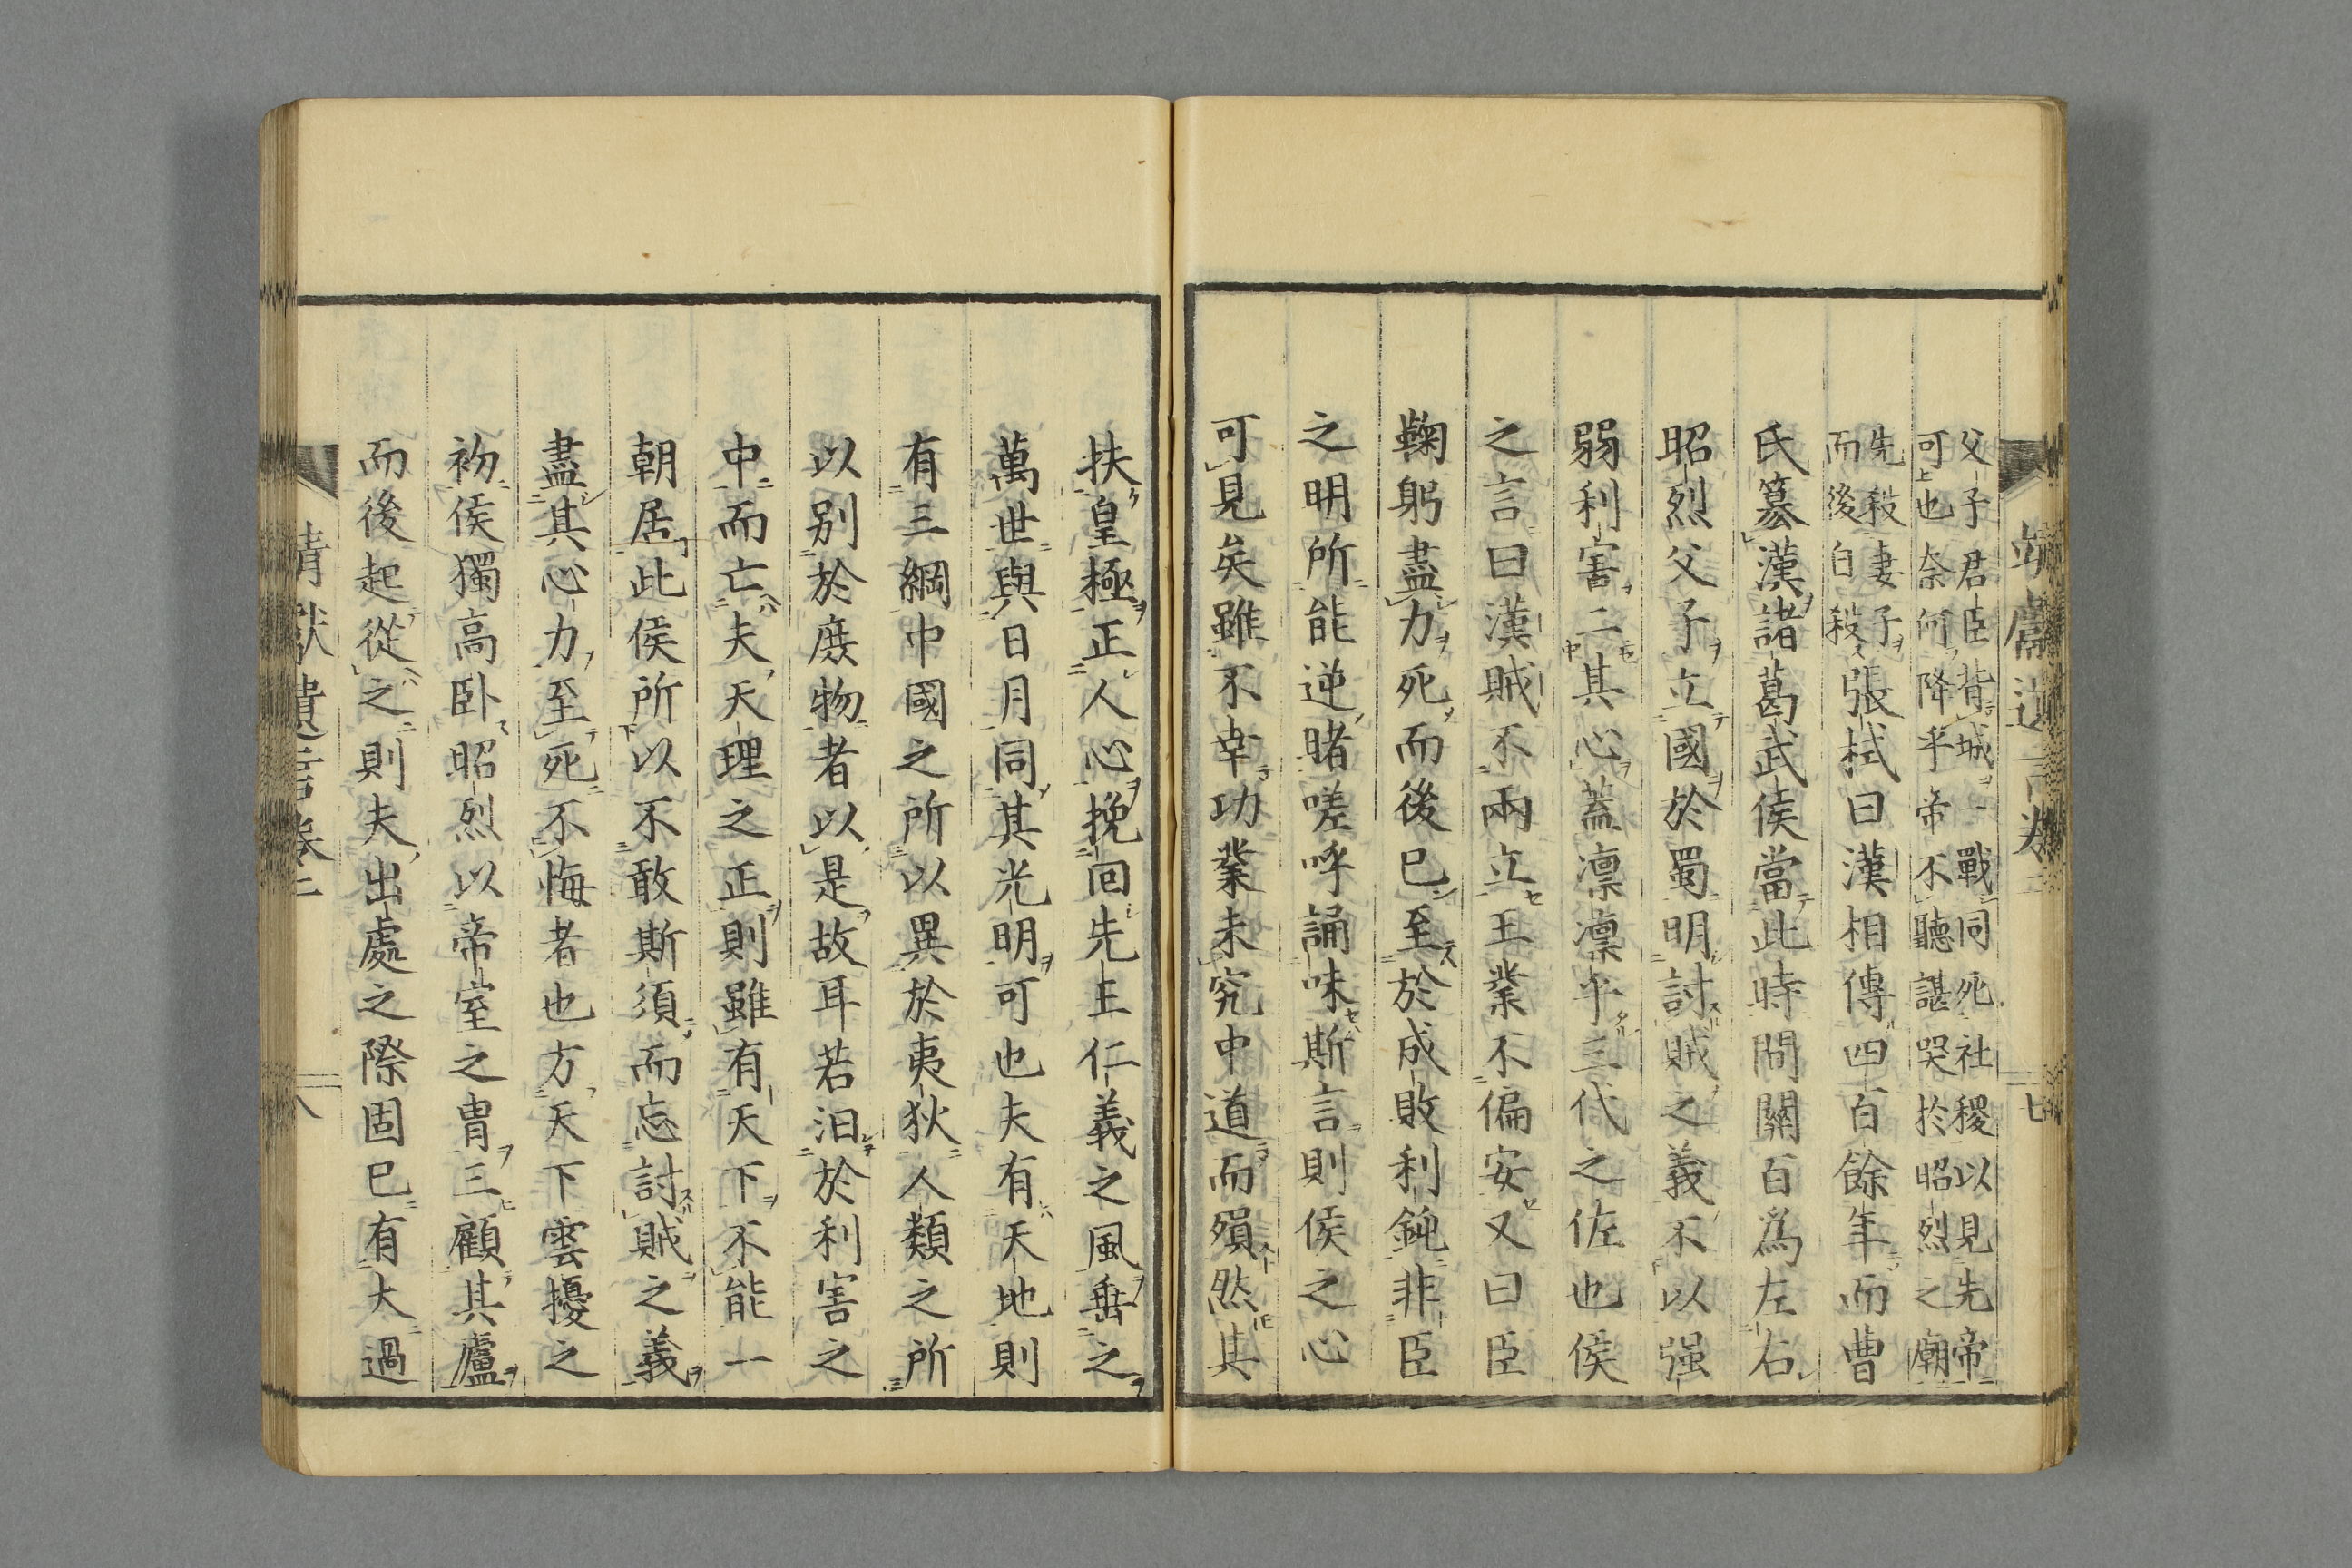 靖獻遺言卷二
七
父子君臣背城一戰同死社稷以見先帝
可也奈何降乎帝不聽諶哭於昭烈之廟
先殺妻子
而後自殺
張栻曰漢相傳四百餘年而曹
氏簒漢諸葛武侯當此時間關百爲左右
昭烈父子立國於蜀明討賊之義不以强
弱利害二其心蓋凛凛乎三代之佐也侯
之言曰漢賊不兩立王業不偏安又曰臣
鞠躬盡力死而後已至於成敗利鈍非臣
之明所能逆睹嗟呼誦味斯言則侯之心
可見矣雖不幸功業未究中道而殞然其
扶皇極正人心挽回先王仁義之風垂之
萬世與日月同其光明可也夫有天地則
有三綱中國之所以異於夷狄人類之所
以别於庶物者以是故耳若汨於利害之
中而亡夫天理之正則雖有天下不能一
朝居此侯所以不敢斯須而忘討賊之義
盡其心力至死不悔者也方天下雲擾之
初侯獨高卧昭烈以帝室之胄三顧其廬
而後起從之則夫出處之際固已有大過
靖獻遺言卷二
八